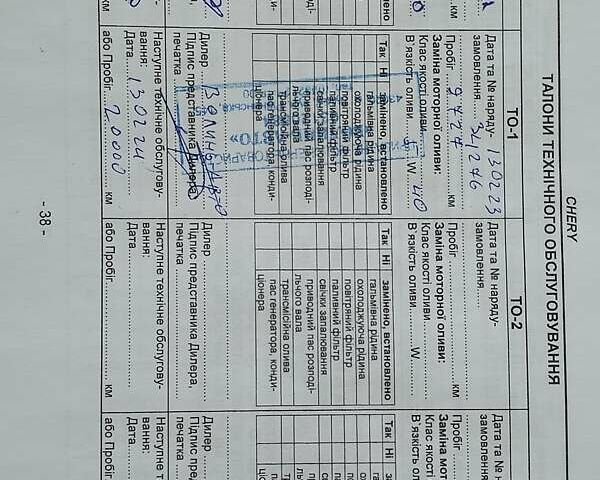 CHERY
ТАЛОНИ ТЕХНІЧНОГО ОБСЛУГОВУВАННЯ
ТО-1
Дата та № наряду- 130223
замовлення 34276
Пробіг 9427 км
Заміна моторної оливи:
Клас якості оливи
В'язкість оливи 5 W 40
Так Ні замінено, встановлено
гальмівна рідина
охолоджуюча рідина
повітряний фільтр
паливний фільтр
свічки запалювання
приводний пас розподі-
льчого вала
трансмісійна олива
пас генератора, конди-
ціонера
Дилер
Підпис представника Дилера,
печатка
Наступне технічне обслугову-
вання:
Дата 130224
або Пробіг 20000 км
ТО-2
Дата та № наряду-
замовлення
Пробіг км
Заміна моторної оливи:
Клас якості оливи
В'язкість оливи W
Так Ні замінено, встановлено
гальмівна рідина
охолоджуюча рідина
повітряний фільтр
паливний фільтр
свічки запалювання
приводний пас розподі-
льчого вала
трансмісійна олива
пас генератора, конди-
ціонера
Дилер
Підпис представника Дилера,
печатка
Наступне технічне обслугову-
вання:
Дата
або Пробіг км
Дата та № н
замовлення
Пробіг
Заміна мот
Клас якості
В'язкість ол
Так Ні
Дилер
Підпис пре
печатка
Наступне т
вання:
Дата
або Пробіг
- 38 -